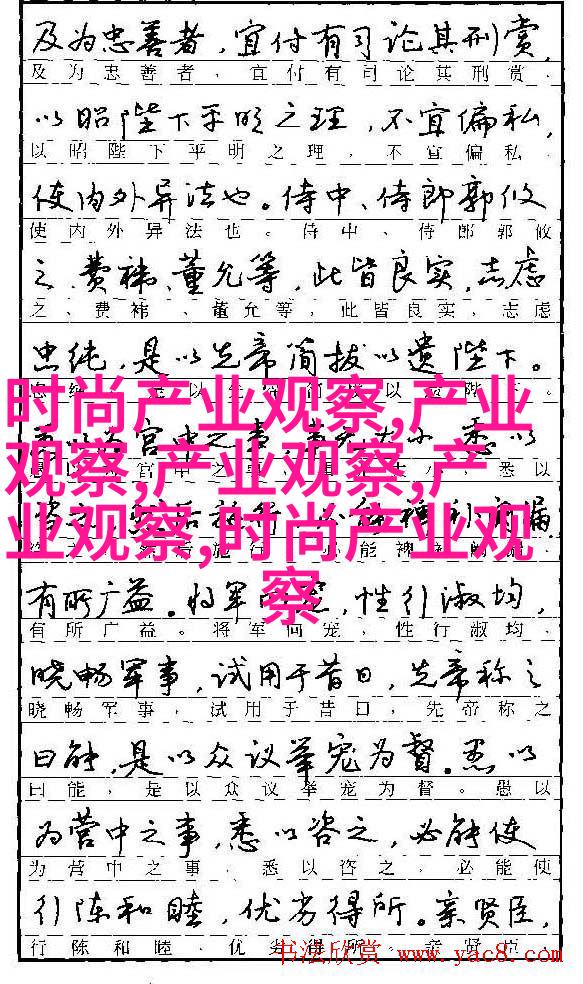 及为忠善者，宜付有司论其刑赏，
及为忠善者，宜付有司论其刑赏，
以昭陛下平明之理，不宜偏私，
以昭陛下平明之理，不宜偏私，
使内外异法也。侍中、侍郎郭攸
使内外异法也。侍中、侍郎郭攸
之、费袆、董允等，此皆良实，志虑
之、费袆、董允等，此皆良实，志虑
忠纯，是以先帝简拔以遗陛下。
时尚产业观察,产业
观察,产业观察,产
业观察,时尚产业观
察
有所广益。将军向宠，性行淑均，
有所广益。将军向宠，性行淑均，
晓畅军事，试用于昔日，先帝称之
晓畅军事，试用于昔日，先帝称之
曰能，是以众议举宠为督。愚以
曰能，是以众议举宠为督。愚以
为营中之事，悉以咨之，必能使
为营中之事，悉以咨之，必能使
行陈和睦，优劣得所。亲贤臣，
行陈和睦，优劣得所。亲贤臣，
书法欣赏 www.yac8.com